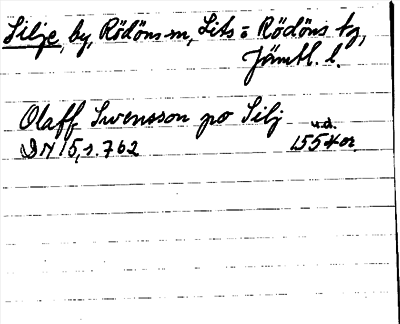 Silje, by, Rödöns sn, Lits o Rödöns tg,
Jämtl. l.
Olaff Swensson po Silj u.d.
DN 15, s. 762 1554 or.